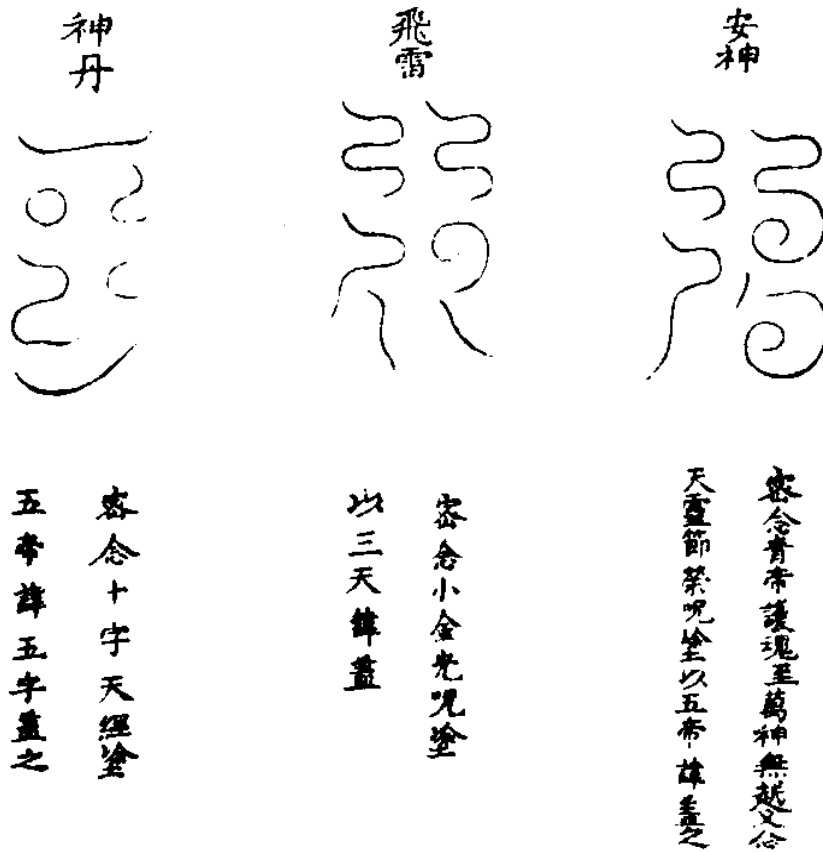 安神
密念青帝護魂至萬神無越又念
天靈節榮咒塗以五帝諱蓋之
飛雷
密念小金光咒塗
以三天諱蓋
神丹
密念十字天經塗
五帝諱五字蓋之